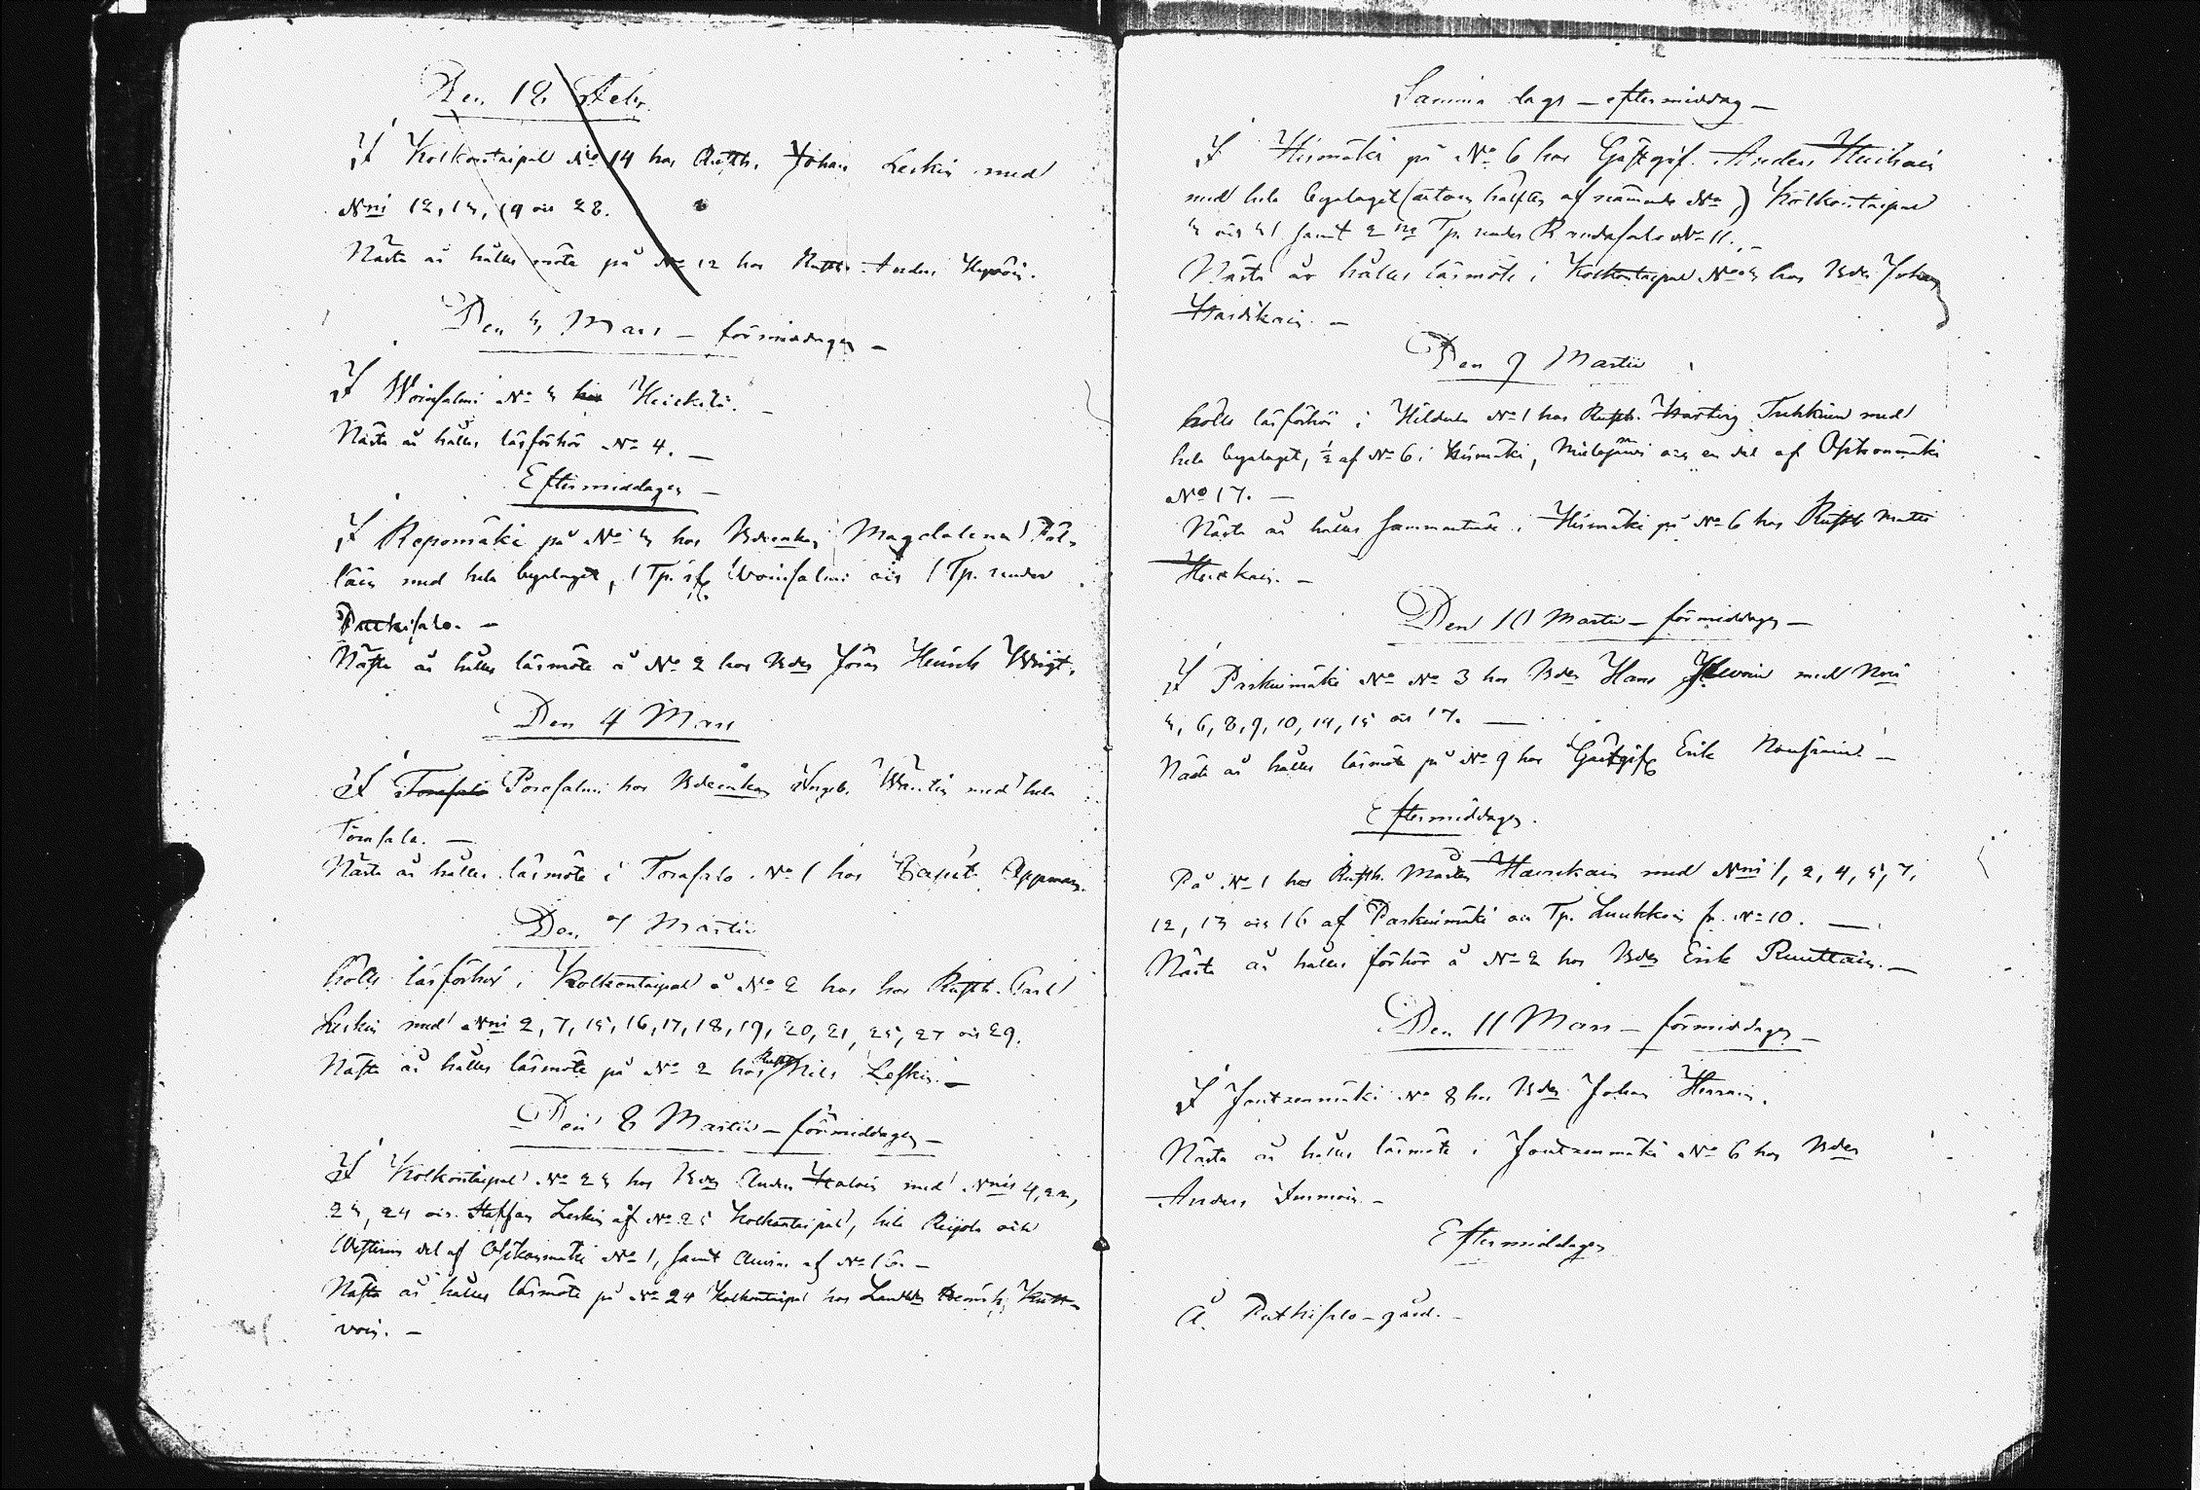 Den 18 Febr.
I Kolkontaipal No 14 hos Rusth. Johan Leskin med
Nris 12, 13, 19 och 28.
Nästa år hålles möte på No 12 hos Rusth. Anders
Den 3 Mars – förmiddagen –
I Woinsalmi No 3 hos Heickilä.
Nästa år hålles läsförhör No 4. –
Eftermiddagen –
I Repomäki på No 3 hos Bdeenkan Magdalena Pöl-
läin med hela byalaget, 1 Tp. ifr. Woinsalmi och 1 Tp. under
Putkisalo. –
Nästa år hålles läsmöte å No 2 hos Bden Jöran Heinrich Weigt.
Den 4 Mars
I Torasalo Porosalmi hos Bdeenkan Ingeb. Wäntin med hela
Torasalo. –
Nästa år hålles läsmöte i Torasalo No 1 hos Capit. Appman.
Den 7 Martii
hölls läsförhör i Kolkontaipal å No 2 hos hos Rusth. Carl
Leskin med Nris 2, 7, 15, 16, 17, 18, 19, 20, 21, 25, 27 och 29.
Nästa år hålles läsmöte på No 2 hos Rusth. Nils Leskin. –
Den 8 Martii – förmiddagen –
I Kolkontaipal No 23 hos Bden Anders med Nris 4, 22,
23, 24 och Staffan Leskin af No 25 Kolkontaipal, hela Reijola och
del af Osikonmäki No 1, samt af No 16. –
Nästa år hålles läsmöte på No 24 Kolkontaipal hos Henrich Kutt-
voin. –
Samma dags – eftermiddag –
I Hismäki på No 6 hos Gästgif. Anders Heiskain
med hela byalaget (utom hälften af nämnde No,) Kolkontaipal
3 och 31 samt 2 ne Tp. under Randasalo No 11. –
Nästa år hålles läsmöte i Kolkontaipal No 3 hos Bden Johan
Hardikain. –
Den 9 Martii
hölls läsförhör i Hildula No 1 hos Rusth. Tuhkuin med
hela byalaget, ½ af No 6 i Hismäki, och en del af Osikonmäki
No 17. –
Nästa år hålles sammanträde i Hismäki på No 6 hos Rusth. Matts
Heiskain. –
Den 10 Martii – förmiddagen –
I Paskuimäki No No 3 hos Bden Hans med Nris
3, 6, 8, 9, 10, 14, 15 och 17. –
Nästa år hålles läsmöte på No 9 hos Gästgif. Erik Nousiain –
Eftermiddagen.
På No 1 hos Rusth. Mårten Hämäläin med Nris 1, 2, 4, 5, 7,
12, 13 och 16 af Paskuimäki och Tp. Luukkoin fr. No 10. –
Nästa år hålles förhör å No 2 hos Bden Erik Ruuttain. –
Den 11 Mars – förmiddagen –
I Joutzenmäki No 8 hos Bden Johan
Nästa år hålles läsmöte i Joutzenmäki No 6 hos Bden
Anders Immoin. –
Eftermiddagen
Å Putkisalo – gård. –